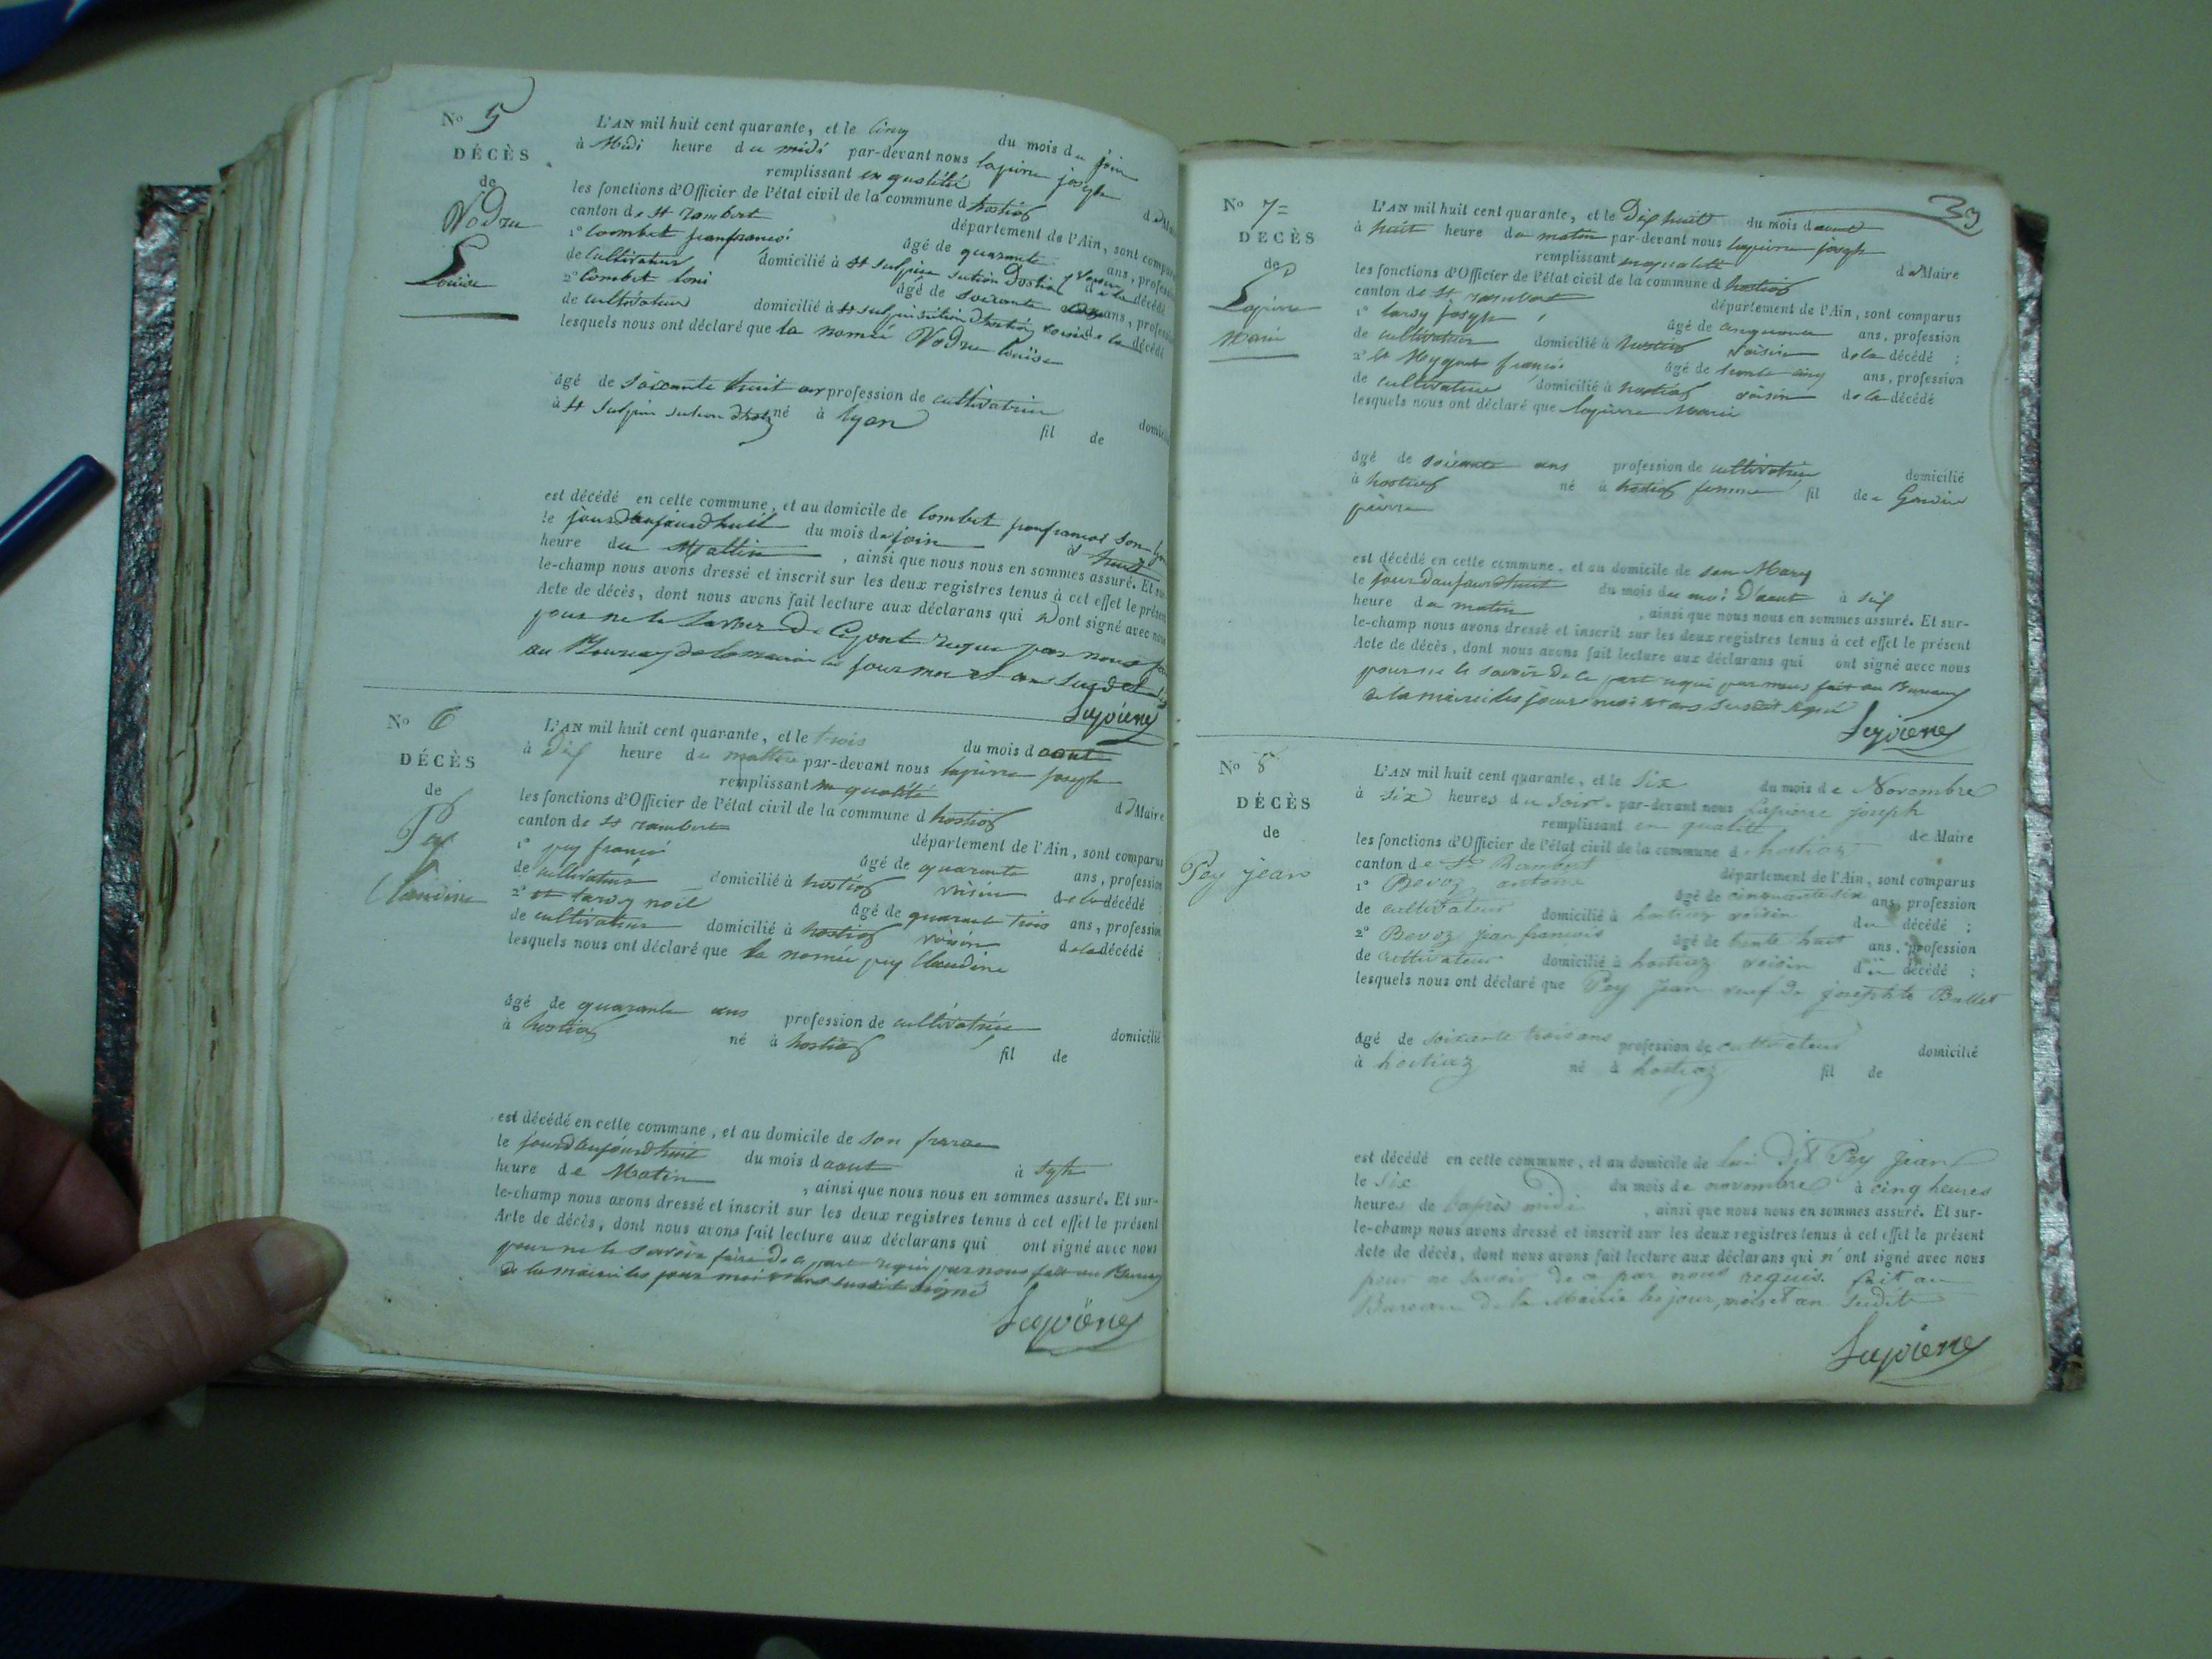 No 5
DÉCÈS
de
Vodru
Louise
L'AN mil huit cent quarante, et le cinq du mois de join
à Midi heure du midi par-devant nous lapierre joseph
remplissant en qualité d Maire
les fonctions d'Officier de l'état civil de la commune d hostiaz
canton de St rambert département de l'Ain, sont comparus
1° Combet jeanfrancoi âgé de quarante ans, profession
de Cultivateur domicilié à St sulpice section Dostiaz de la décédé
2° Combet âgé de soixante ans, profession
de cultivateur domicilié à St sulpice section dhostiaz voisin de la décédé
lesquels nous ont déclaré que la nomée Vodru louise
âgé de soixante huit ans profession de cultivatrice domicilié
à St sulpice section dhostiaz né à lyon fil de
est décédé en cette commune, et au domicile de Combet jeanfrancoi son
le jourdaujourdhuit du mois de join à huit
heure du Mattin, ainsi que nous nous en sommes assuré. Et sur-
le-champ nous avons dressé et inscrit sur les deux registres tenus à cet effet le présent
Acte de décès, dont nous avons fait lecture aux déclarans qui n'ont signé avec nous
pour ne le savoir de ce part requi par nous fait
au Bureau de la mairie les jour moi et an susdit
Lapierre
No 6
DÉCÈS
de
Pey
Claudine
L'AN mil huit cent quarante, et le trois du mois d aout
à dix heure du mattin par-devant nous lapierre joseph
remplissant en qualité d Maire
les fonctions d'Officier de l'état civil de la commune d hostiaz
canton de St rambert département de l'Ain, sont comparus
1° pey francoi âgé de quarante ans, profession
de cultivateur domicilié à hostiaz voisin de la décédé
2° et tardy noel âgé de quarante trois ans, profession
de cultivateur domicilié à hostiaz voisin de la décédé ;
lesquels nous ont déclaré que la nomée pey Claudine
âgé de quarante ans profession de cultivatrice domicilié
à hostiaz né à hostiaz fil de
est décédé en cette commune, et au domicile de son frere
le jourdaujourdhuit du mois d aout à
heure de Matin, ainsi que nous nous en sommes assuré. Et sur-
le-champ nous avons dressé et inscrit sur les deux registres tenus à cet effet le présent
Acte de décès, dont nous avons fait lecture aux déclarans qui ont signé avec nous
pour ne le savoir faire de ce part requi par nous fait au Bureau
de la mairie les jour moi et ans susdit signé
Lapierre
33
No 7=
DÉCÈS
de
Lapierre
Marie
L'AN mil huit cent quarante, et le Dix huitt du mois d aout
à huit heure du matin par-devant nous lapierre joseph
remplissant en qualité d Maire
les fonctions d'Officier de l'état civil de la commune d hostiaz
canton de St rambert département de l'Ain, sont comparus
1° tardy joseph âgé de cinquante ans, profession
de cultivateur domicilié à hostiaz voisin de la décédé ;
2° et francoi âgé de trente cinq ans, profession
de cultivateur domicilié à hostiaz voisin de la décédé
lesquels nous ont déclaré que lapierre Marie
âgé de soixante ans profession de cultivatrice domicilié
à hostiaz né à hostiaz femme fil de
pierre
est décédé en cette commune, et au domicile de son Mary
le jourdaujourdhuit du mois du moi d'aout à six
heure du matin, ainsi que nous nous en sommes assuré. Et sur-
le-champ nous avons dressé et inscrit sur les deux registres tenus à cet effet le présent
Acte de décès, dont nous avons fait lecture aux déclarans qui ont signé avec nous
pour ne le savoir de ce part requi par nous fait au Bureau
de la mairie les jour moi et ans susdit signé
Lapierre
No 8
DÉCÈS
de
Pey jean
L'AN mil huit cent quarante, et le six du mois de Novembre
à six heures du soir par-devant nous Lapierre joseph
remplissant en qualité de Maire
les fonctions d'Officier de l'état civil de la commune d hostiaz
canton de St Rambert département de l'Ain, sont comparus
1° Bevoz antoine âgé de cinquante six ans, profession
de cultivateur domicilié à hostiaz voisin du décédé ;
2° Bevoz jean francois âgé de trente huit ans, profession
de cultivateur domicilié à hostiaz voisin du décédé ;
lesquels nous ont déclaré que Pey jean veuf de josephte Ballet
âgé de soixante trois ans profession de cultivateur domicilié
à hostiaz né à hostiaz fil de
est décédé en cette commune, et au domicile de lui dit Pey jean
le six du mois de novembre à cinq heures
heures de l'après midi, ainsi que nous nous en sommes assuré. Et sur-
le-champ nous avons dressé et inscrit sur les deux registres tenus à cet effet le présent
Acte de décès, dont nous avons fait lecture aux déclarans qui n'ont signé avec nous
pour ne savoir de ce par nous requis. fait au
Bureau de la Mairie les jour, mois et an susdits
Lapierre